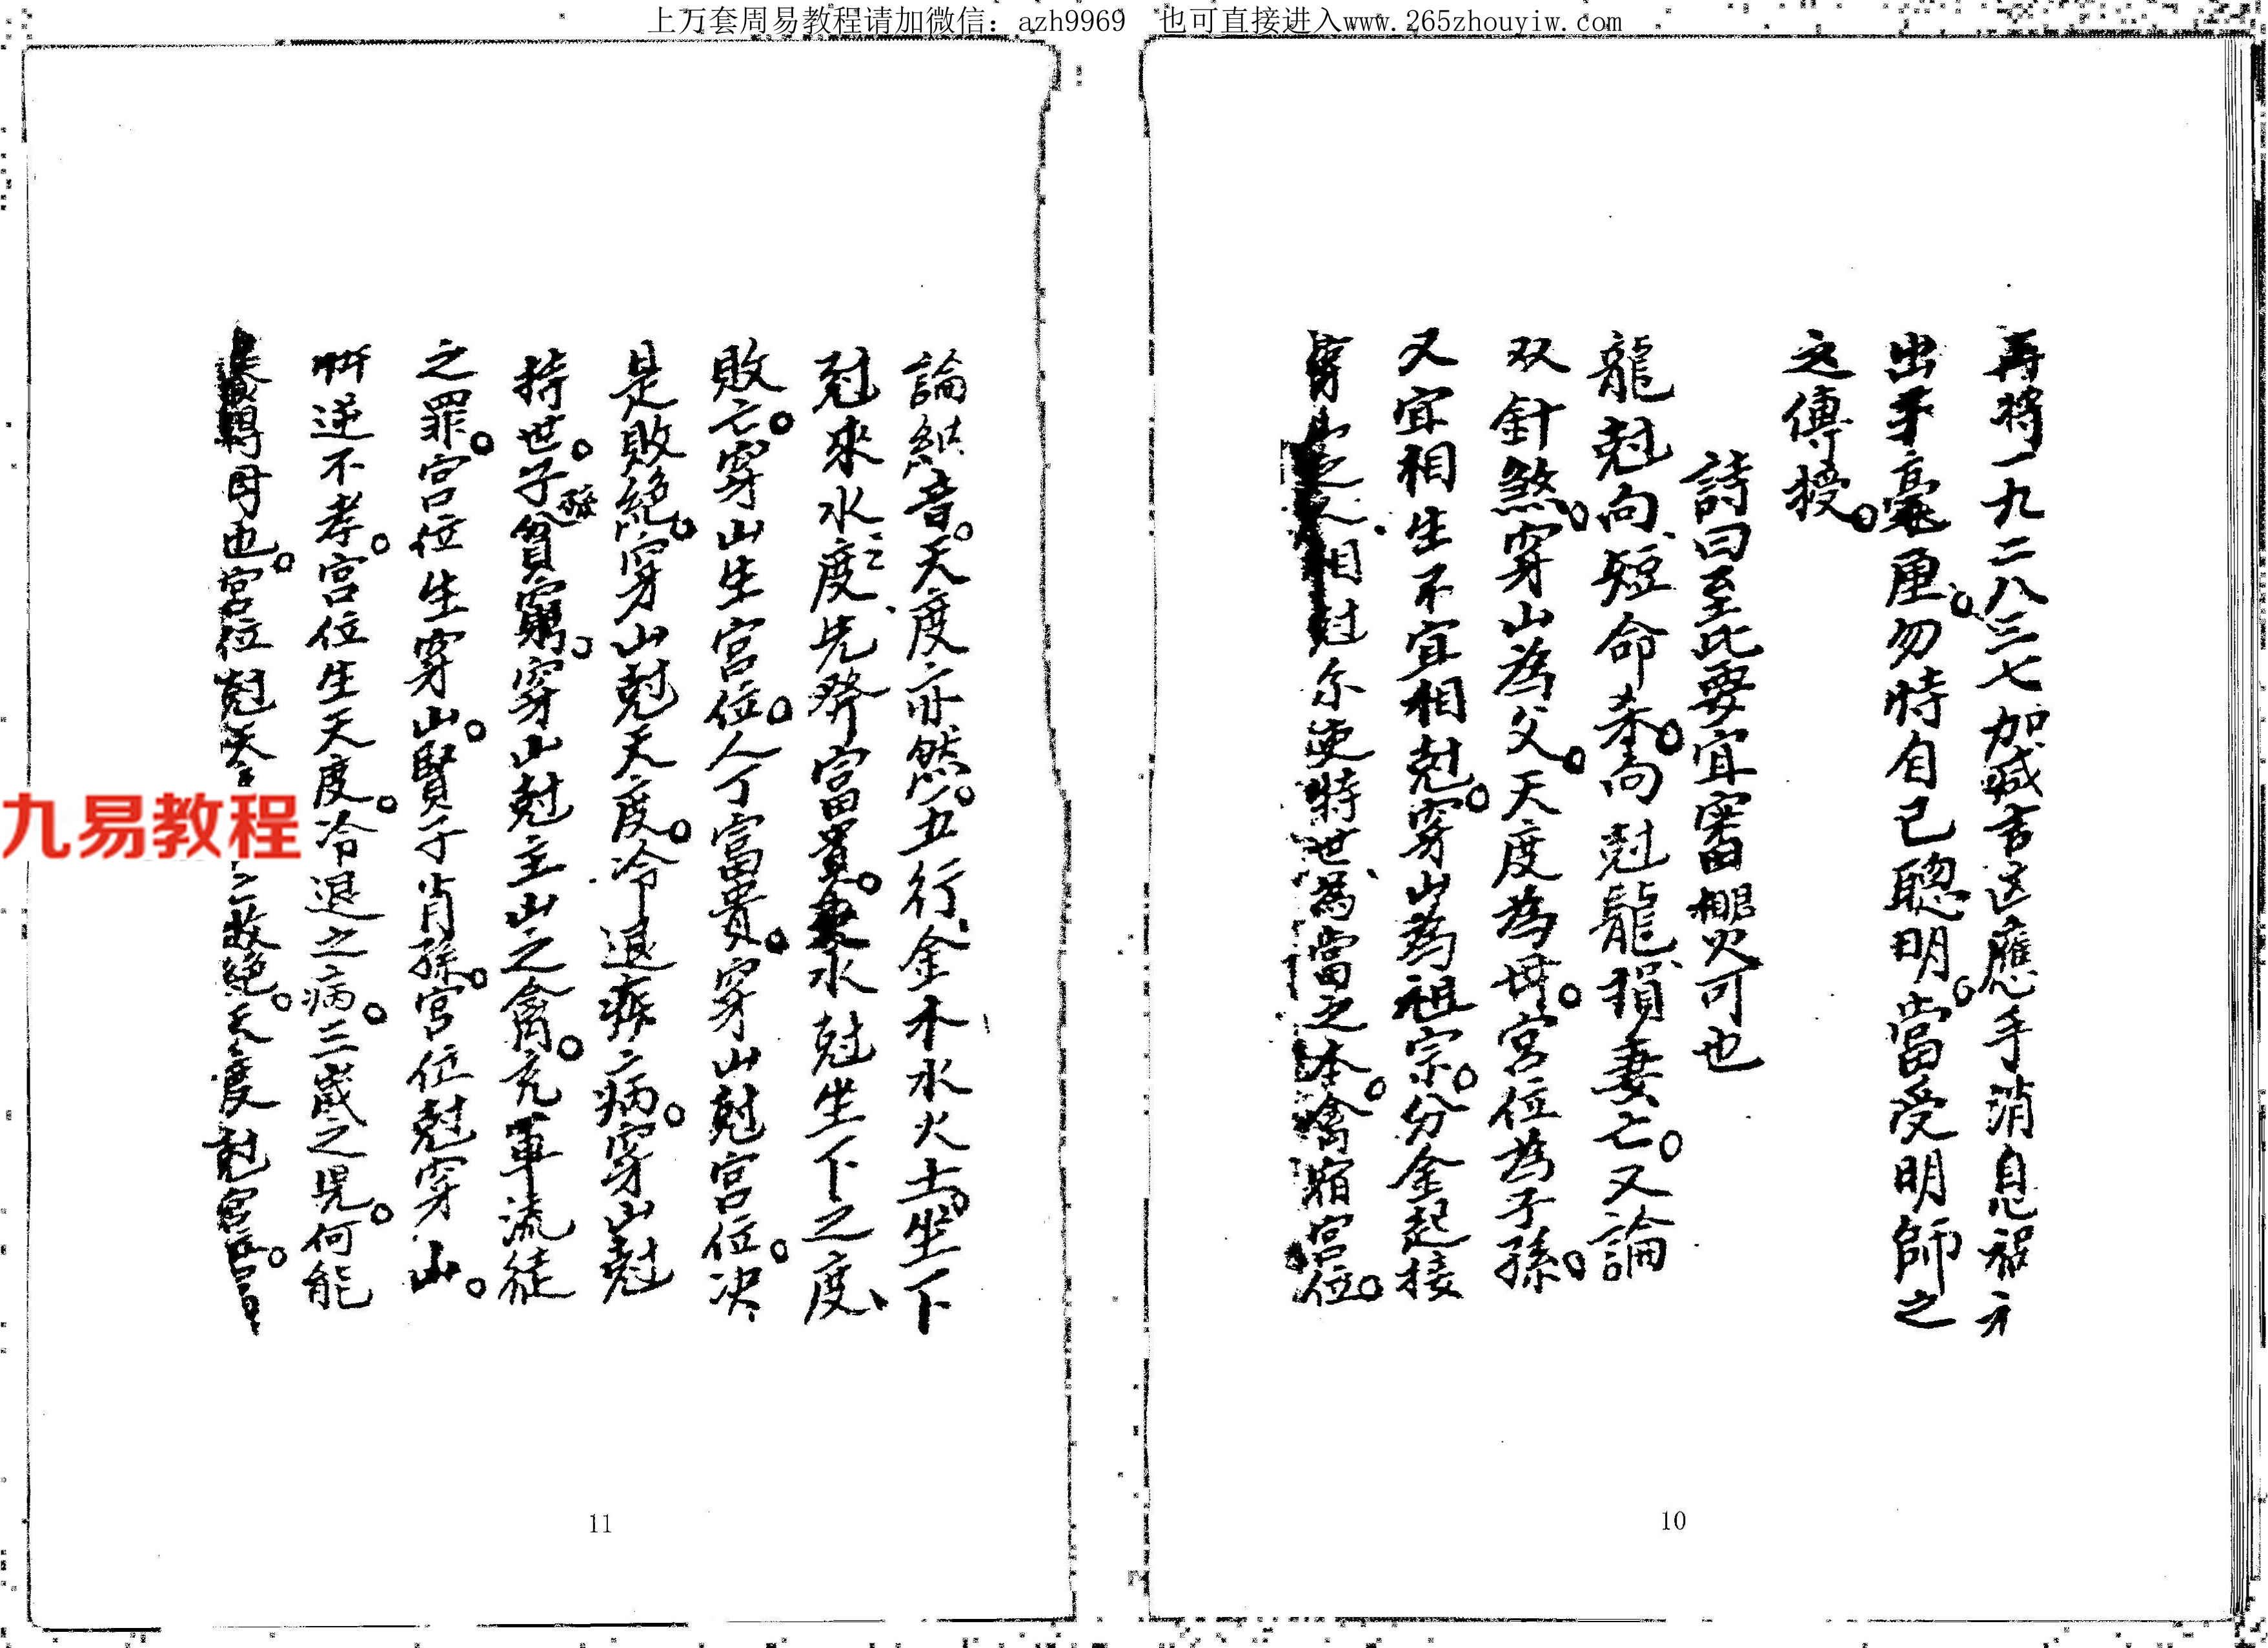 上万套周易教程请加微信：azh9969　也可直接进入www.265zhouyiw.com
再將一九二八三七加減吉凶應手消息福
出乎毫厘勿恃自己聰明當受明師之
之傳授
詩曰至此要宜審 可也
龍尅向短命夭向尅龍損妻亡又論
双針煞穿山為父天度為母宮位為子孫
又宜相生不宜相尅穿山為祖宗分金起接
相尅 世為當之本禽宿宮位
10
論納音天度亦然五行金木水火土坐下
尅來水度先發富貴 水尅坐下之度
敗亡穿山生宮位人丁富貴穿山尅宮位决
是敗絕穿山尅天度冷退 病穿山尅
持世子孫貧窮穿山尅主山之禽充軍流徒
之罪宮位生穿山賢子肖孫宮位尅穿山
忤逆不孝宮位生天度冷退之病三歲之児何能
養得母也宮位尅天 之敗絕天度尅宮位
九易教程
11